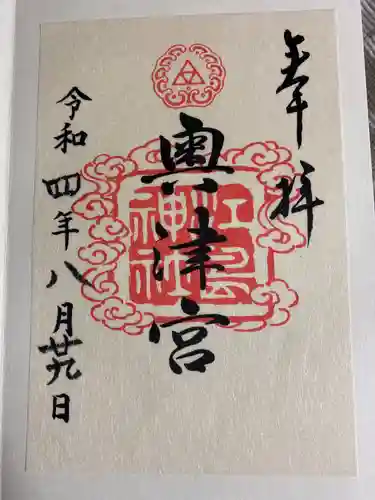 奉拝
奧津宮
江島神社
令和四年八月廿九日